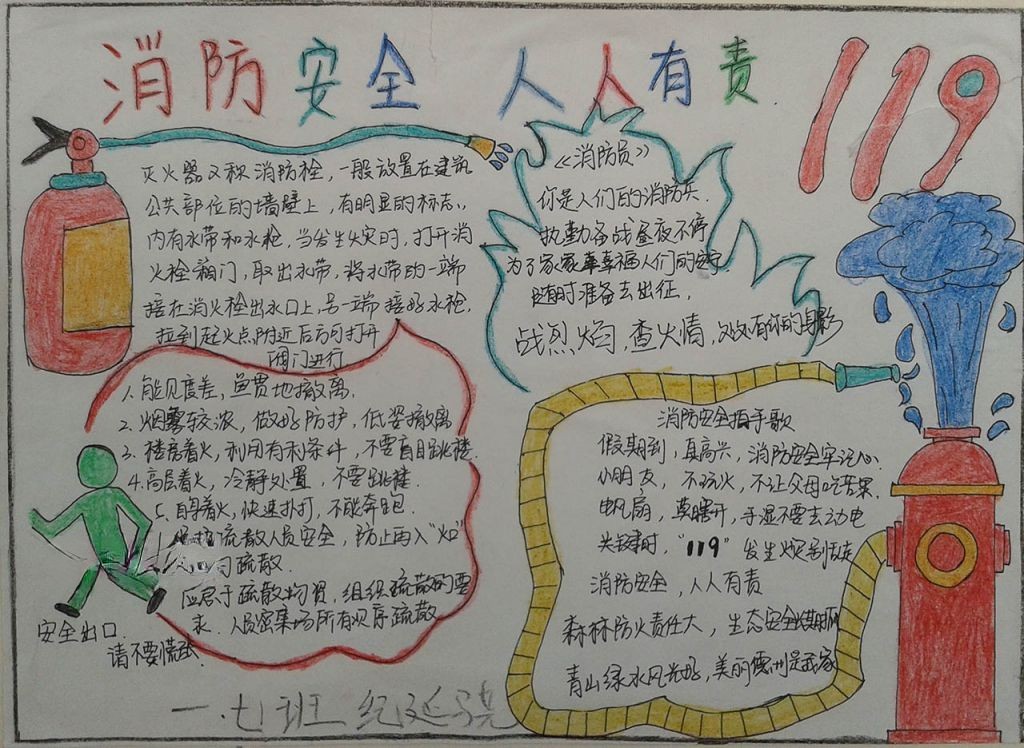 消防安全 人人有责
119
灭火器又称消防栓，一般放置在建筑
公共部位的墙壁上，有明显的标志，
内有水带和水枪，当发生火灾时，打开消
火栓箱门，取出水带，将水带的一端
接在消火栓出水口上，另一端接好水枪，
拉到起火点附近后方可打开
阀门进行
《消防员》
你是人们的消防兵
执勤备战昼夜不停
为了家家幸福人们的
随时准备去出征，
战烈焰，查火情，处处有你的身影
1、能见度差，鱼贯地撤离，
2、烟雾较浓，做好防护，低姿撤离
3、楼房着火，利用有利条件，不要盲目跳楼
4.高层着火，冷静处置，不要跳楼
5、身着火，快速扑打，不能奔跑
疏散人员安全，防止再入"火口"
疏散
应急于疏散物资，组织疏散的要
求，人员密集场所有顺序疏散
安全出口
请不要慌张
消防安全拍手歌
假期到，真高兴，消防安全牢记心
小朋友，不玩火，不让父母吃苦果
电风扇，莫瞎开，手湿不要去动电
关键时，"119"发生火灾别
消防安全，人人有责
森林防火责任大，生态安全
青山绿水风光好，美丽德州是我家
一.七班 纪延骁